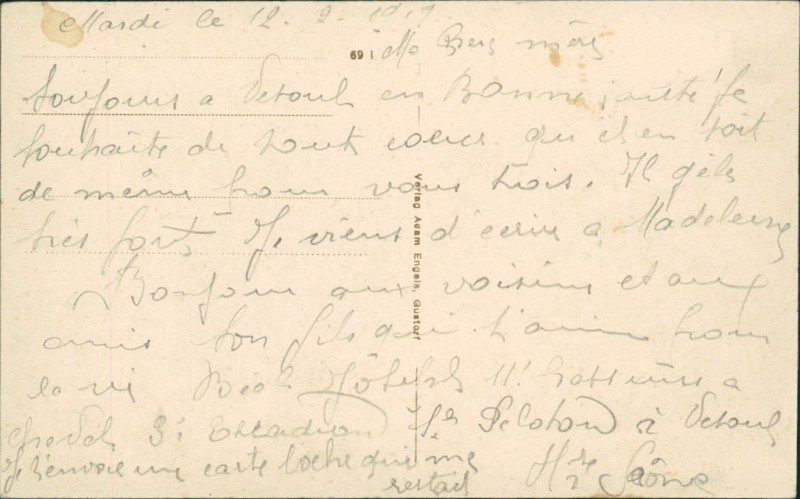 Mardi le 12. 2. 1919
69 | Ma Chers mère
toujours a Vesoul en Bonne santé Je
souhaite de tout coeur qu el en soit
de même pour vous trois. Il gèle
très fort. Je viens d'ecrire a Madeleine
Bonjour aux voisins et aux
amis ton fils qui t'aime pour
la vie 11e chasseurs a
cheval 3e Escadron 1er Peloton à Vesoul
Je t'envoie une carte boche qui me
restait Hte Saône
Verlag Adam Engels, Gustorf